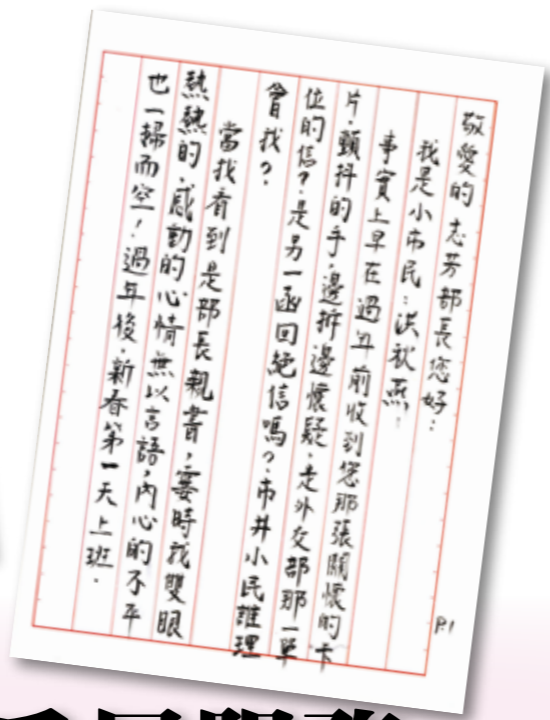 敬愛的志芳部長您好：
我是小市民：洪秋燕！
事實上早在過年前收到您那張關懷的卡
片．顫抖的手，邊拆邊懷疑，是外交部那一單
位的信？是另一函回絕信嗎？市井小民誰理
會我？
當我看到是部長親書，霎時我雙眼
熱熱的．感動的心情無以言語，內心的不平
也一掃而空！過年後．新春第一天上班．
P.1